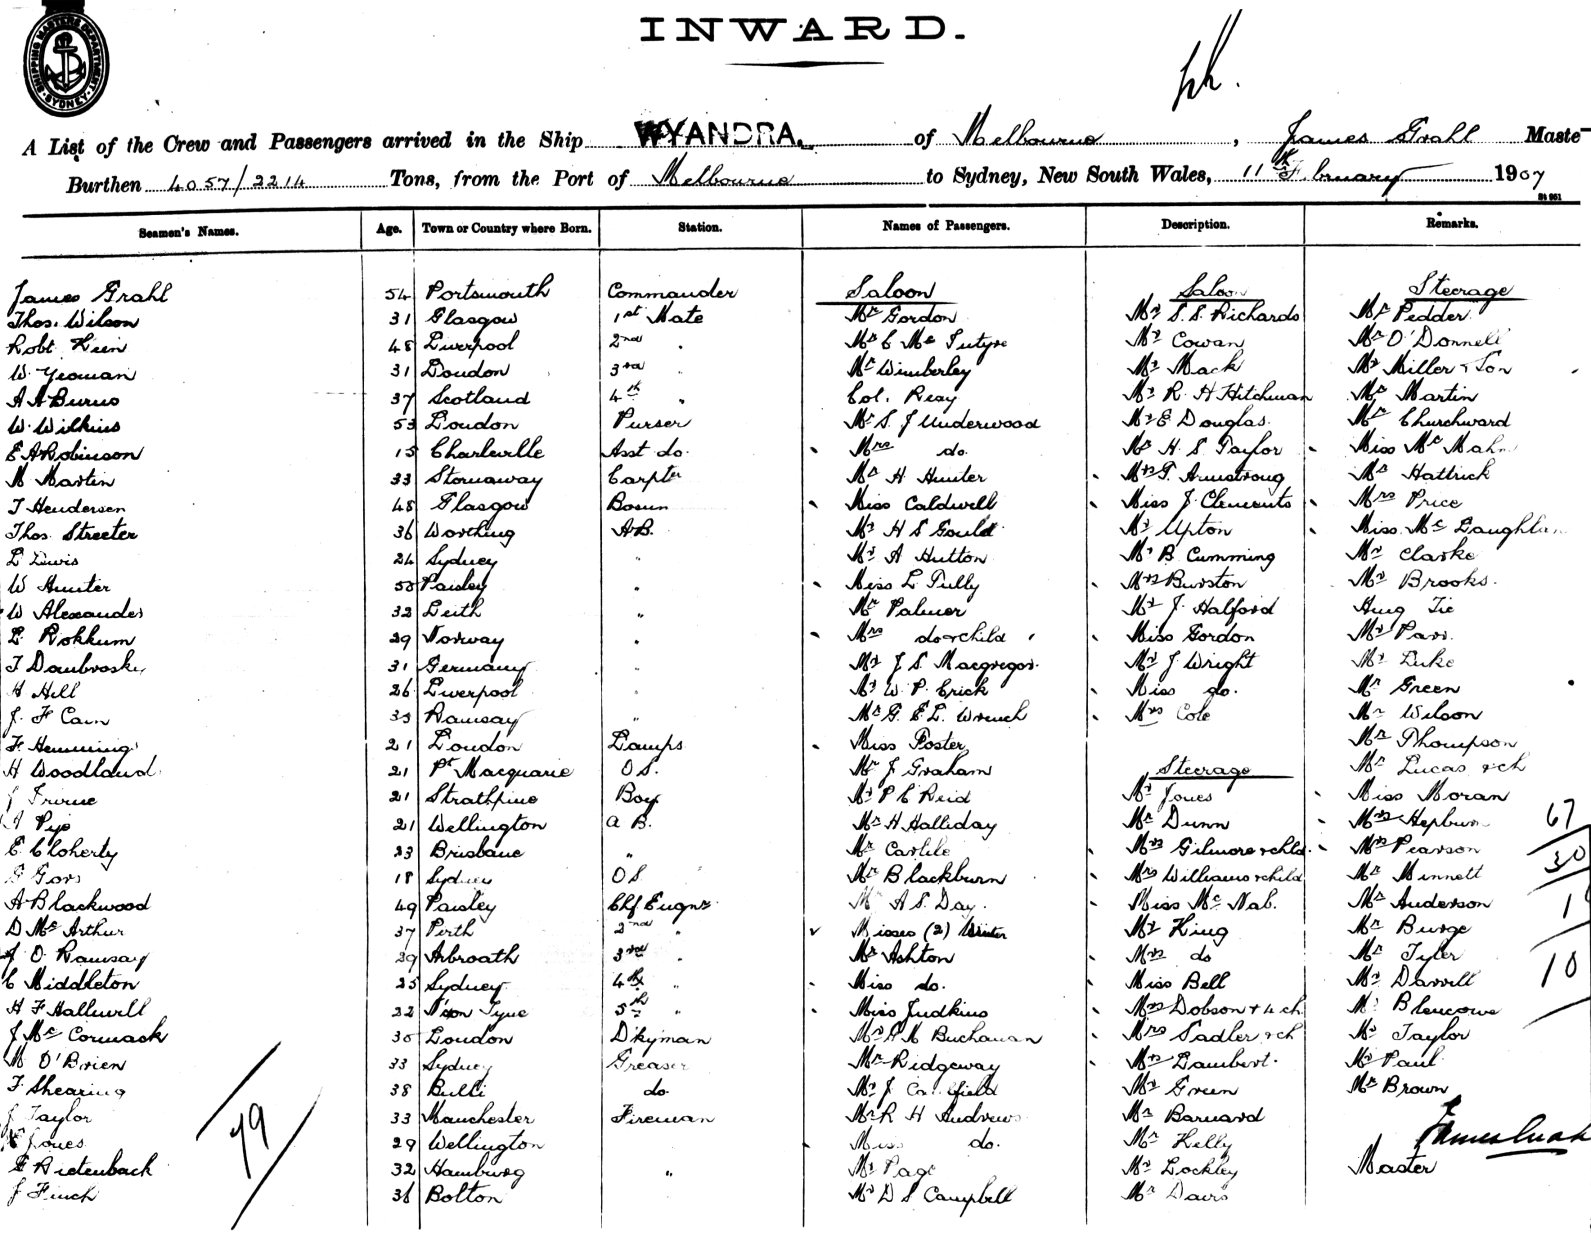 INWARD.
SHIPPING MASTERS DEPARTMENT SYDNEY
A List of the Crew and Passengers arrived in the Ship WYANDRA. of Melbourne, James Grahl Maste
Burthen 4057/2214 Tons, from the Port of Melbourne to Sydney, New South Wales, 11th February 1907
St 961
Seamen's Names. Age. Town or Country where Born. Station. Names of Passengers. Description. Remarks.
James Grahl 54 Portsmouth Commander Saloon Saloon Steerage
Thos. Wilson 31 Glasgow 1st Mate Mr Gordon Mr S. S. Richards Mr Pedder
Robt Keen 48 Liverpool 2nd " Mr C Mc Intyre Mr Cowan Mr O'Donnell
W. Yeoman 31 London 3rd " Mr Wimberley Mr Mack Mr Miller & Son
A A Burns 37 Scotland 4th " Col. Reay Mr R. H Hitchman Mr Martin
W. Wilkins 53 London Purser Mr S. J Underwood Mr E Douglas. Mr Churchward
E A Robinson 15 Charleville Asst do. Mrs do. Mr H. S. Taylor Miss Mc Mahn
M Martin 33 Stornaway Carptr Mr H Hunter Mrs Armstrong Mr Hattrick
T Henderson 48 Glasgow Bosun Miss Caldwell Miss J. Clements Mrs Price
Thos. Streeter 36 Worthing AB. Mr H S Gould Mr Upton Miss. Mc Laughlan
L Lewis 24 Sydney " Mr A Hutton Mr B. Cumming Mr Clarke
W Hunter 50 Paisley " Miss L Tully Mrs Burston Mr Brooks.
W Alexander 32 Leith " Mr Palmer Mr J. Halford Hung Tie
L Rokkum 29 Norway " Mrs do & child Miss Gordon Mr Parr.
T Dombrosky 31 Germany " Mr J. S. Macgregor. Mr J. Wright Mr Luke
H Hill 26 Liverpool " Mr W. P. Crick Miss do. Mr Green
J. F Cain 33 Ramsay " Mr G. E. L. Wrench Mrs Cole Mr Wilson
F Hemmings 21 London Lamps Miss Foster Mr Thompson
H Woodland. 21 Pt Macquarie O S. Mr J Graham Steerage Mr Lucas & ch
J Irvine 21 Strathpine Boy Mr P C Reid Mr Jones Miss Moran
Pye 21 Wellington A B. Mr H Halliday Mr Dunn Mrs Hepburn 67
E Cloherty 23 Brisbane " Mr Carlile Mrs Gilmore & chld. Mrs Pearson 30
Gors 18 Sydney O S Mr Blackburn Mrs Williams & child Mr Minnett
A Blackwood 49 Paisley Chf Engnr. Mr A S. Day. Miss Mc Nab. Mr Anderson
D Mc Arthur 37 Perth 2nd " Misses (2) Winter Mr King Mr Burge
J O Ramsay 29 Arbroath 3rd " Mr Ashton Mrs do Mr Tyler
C Middleton 25 Sydney 4th " Miss do. Miss Bell Mr Darvill 10
H F Halliwell 22 N'on Tyne 5th " Miss Judkins Mrs Dobson & 4 ch Mr Blencowe
J Mc Cormack 30 London D'kyman Mr Buchanan Mrs Sadler & ch Mr Taylor
M O'Brien 33 Sydney Greaser Mr Ridgeway Mrs Lambert. Mr Paul
T Shearing 38 Bulli do. Mr J. Mr Green Mr Brown
J Taylor 33 Manchester Fireman Mr R H Andrews Mr Barnard
Jones 29 Wellington Miss do. Mr Kelly
Rietenback 32 Hamburg " Mr Page Mr Lockley Master
J Finch 36 Bolton Mr D S Campbell Mr Davis
79